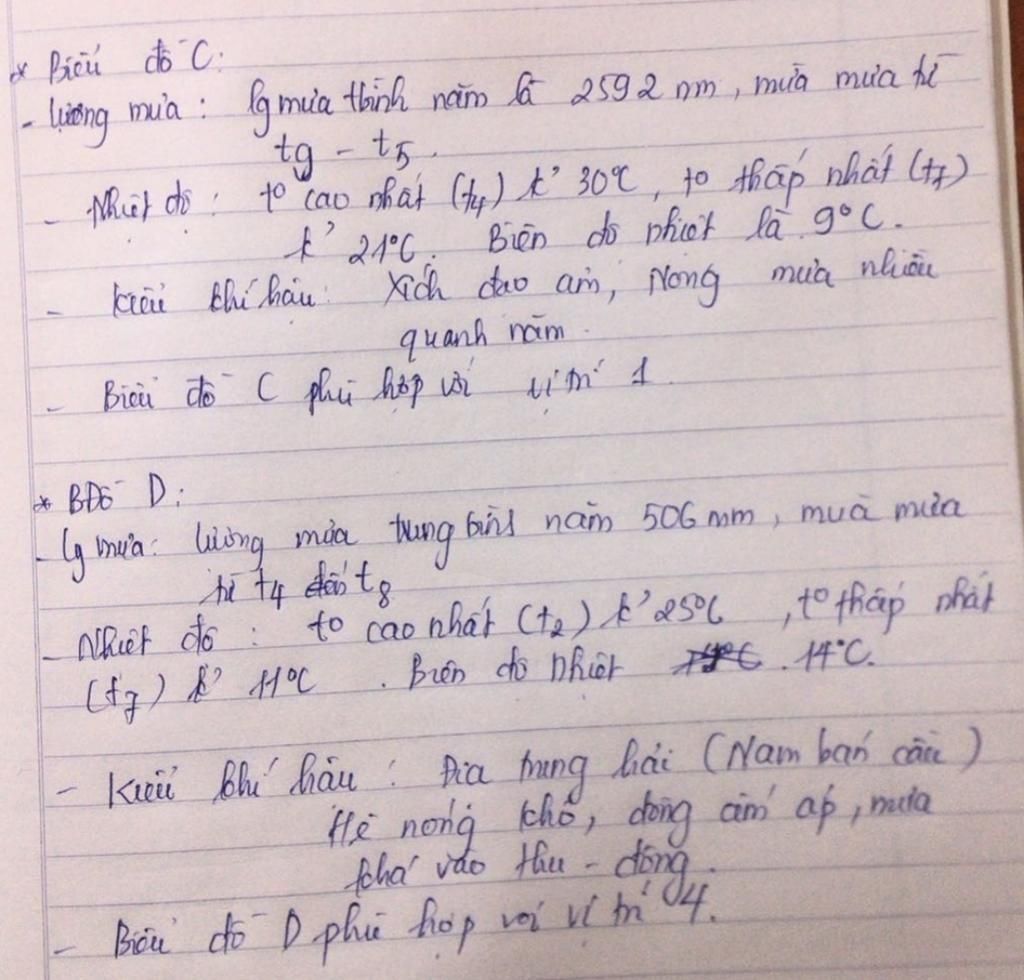 * Biểu đồ C:
- lượng mưa: lg mưa tbình năm là 2592 mm, mùa mưa từ
t9 - t5.
- Nhiệt độ: to cao nhất (t4) k' 30°C, to thấp nhất (t7)
k' 21°C. Biên độ nhiệt là 9°C.
- Kiểu khí hậu: Xích đạo ẩm, Nóng mưa nhiều
quanh năm.
- Biểu đồ C phù hợp với vị trí 1
* BĐồ D:
- lg mưa: lượng mưa trung bình năm 506 mm, mùa mưa
từ t4 đến t8
- Nhiệt độ: to cao nhất (t2) k' 25°C, to thấp nhất
(t7) k' 11°C. Biên độ nhiệt 14°C.
- Kiểu khí hậu: Địa trung hải (Nam bán cầu)
Hè nóng khô, đông ấm áp, mưa
khá vào thu - đông.
- Biểu đồ D phù hợp với vị trí 4.